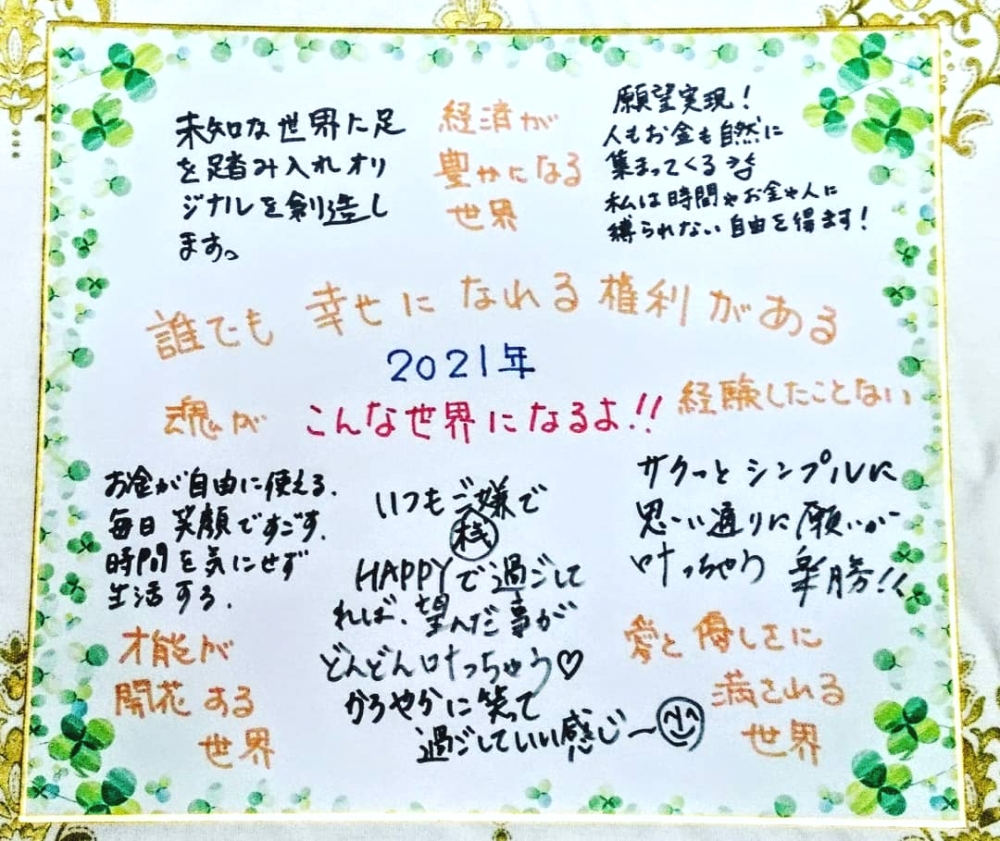 未知な世界に足
を踏み入れオリ
ジナルを創造し
ます。
経済が
豊かになる
世界
願望実現!
人もお金も自然に
集まってくる
私は時間やお金や人に
縛られない自由を得ます!
誰でも幸せになれる権利がある
2021年
魂が
こんな世界になるよ!!
経験したことない
お金が自由に使える.
毎日笑顔ですごす.
時間を気にせず
生活する.
いつもご嫌で
機
HAPPYで過ごして
れば、望んだ事が
どんどん叶っちゃう♡
かろやかに笑って
過ごしていい感じ〜
サクっとシンプルに
思い通りに願いが
叶っちゃう 楽勝!!
才能が
開花する
世界
愛と優しさに
満される
世界